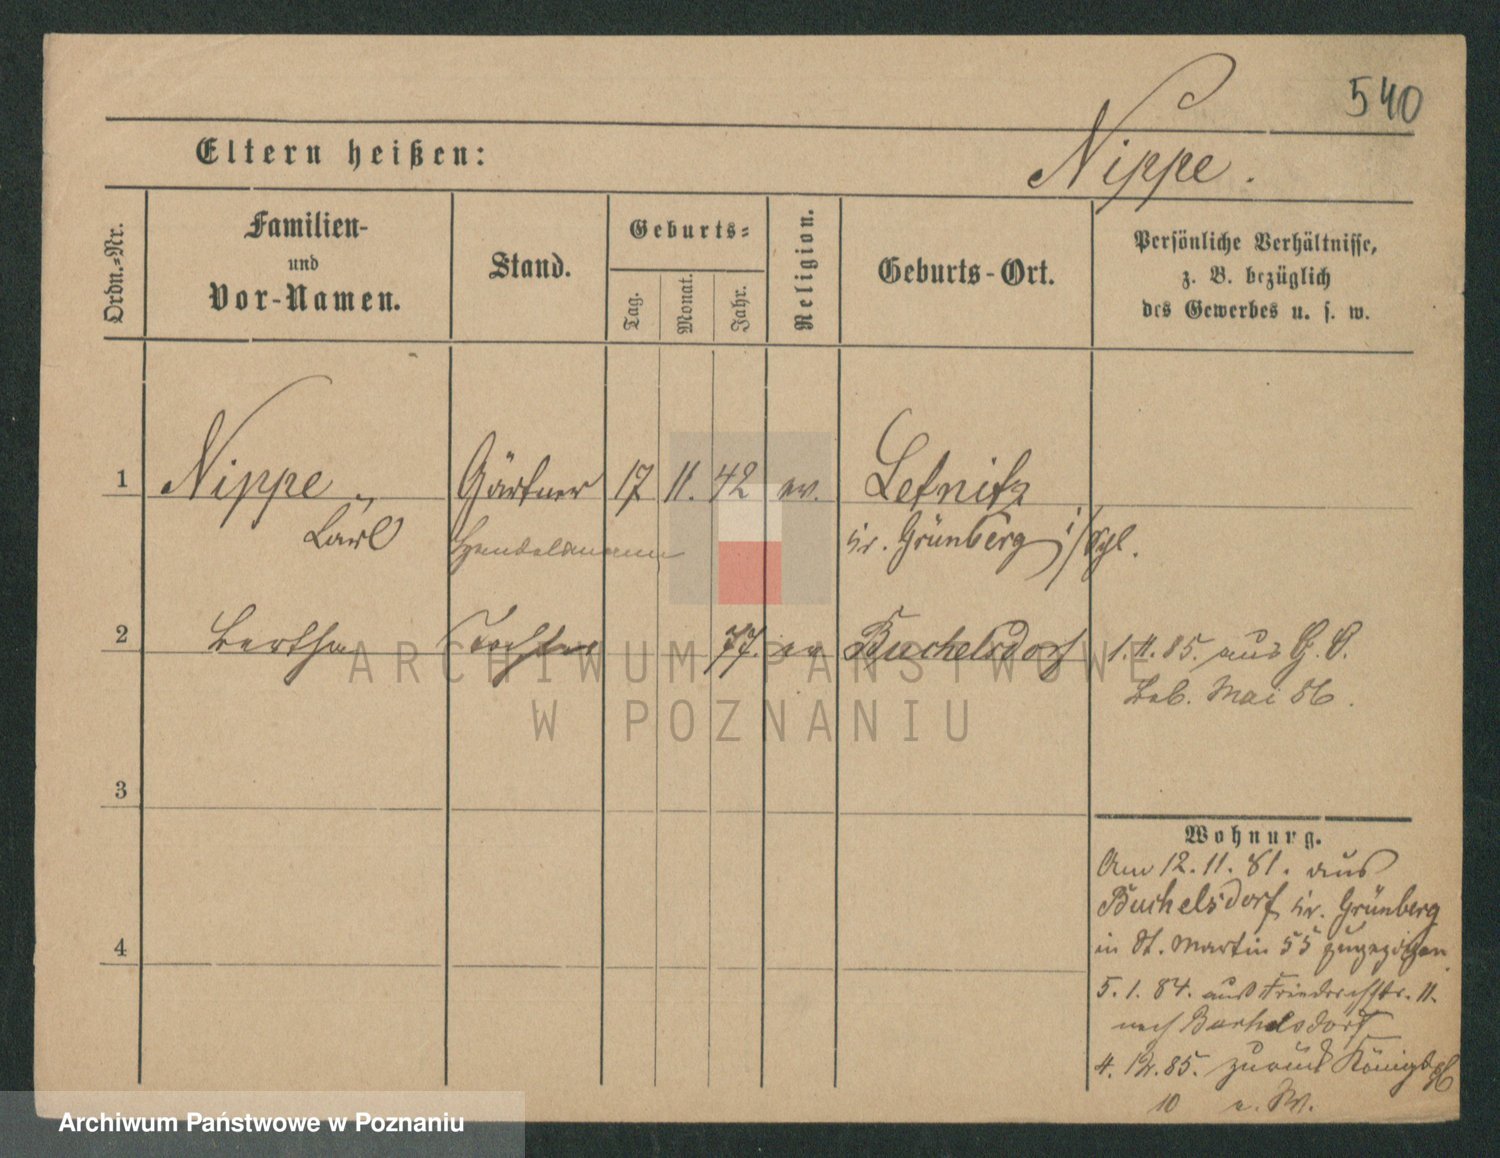 540
Eltern heißen:
Nippe.
Ordn.-Nr.
Familien-
und
Vor-Namen.
Stand.
Geburts-
Tag.
Monat.
Jahr.
Religion.
Geburts-Ort.
Persönliche Verhältnisse,
z. B. bezüglich
des Gewerbes u. s. w.
1
Nippe
Gärtner
17
11.
42
ev.
Letnitz
Karl
Handelsmann
Kr. Grünberg i/Schl.
2
Bertha
Tochter
77.
ev
Buchelsdorf
1.11.85. aus G. O.
Mai 86.
3
4
Wohnung.
Am 12.11.81. aus
Buchelsdorf Kr. Grünberg
in St. Martin 55 zugezogen
5.1.84. aus Friedrichstr. 11.
nach Buchelsdorf
4.12.85. zurück Königspl
10
ARCHIWUM PAŃSTWOWE
W POZNANIU
Archiwum Państwowe w Poznaniu